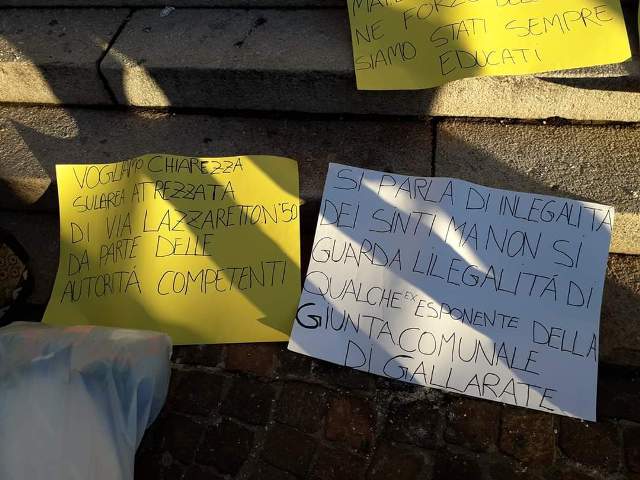 NE FORZO DEL
SIAMO STATI SEMPRE
EDUCATI
VOGLIAMO CHIAREZZA
SULAREA ATREZZATA
DI VIA LAZZARETTO N°50
DA PARTE DELLE
AUTORITÁ COMPETENTI
SI PARLA DI INLEGALITÀ
DEI SINTI MA NON SI
GUARDA L'ILEGALITÁ DI
QUALCHE EX ESPONENTE DELLA
GIUNTA COMUNALE
DI GALLARATE